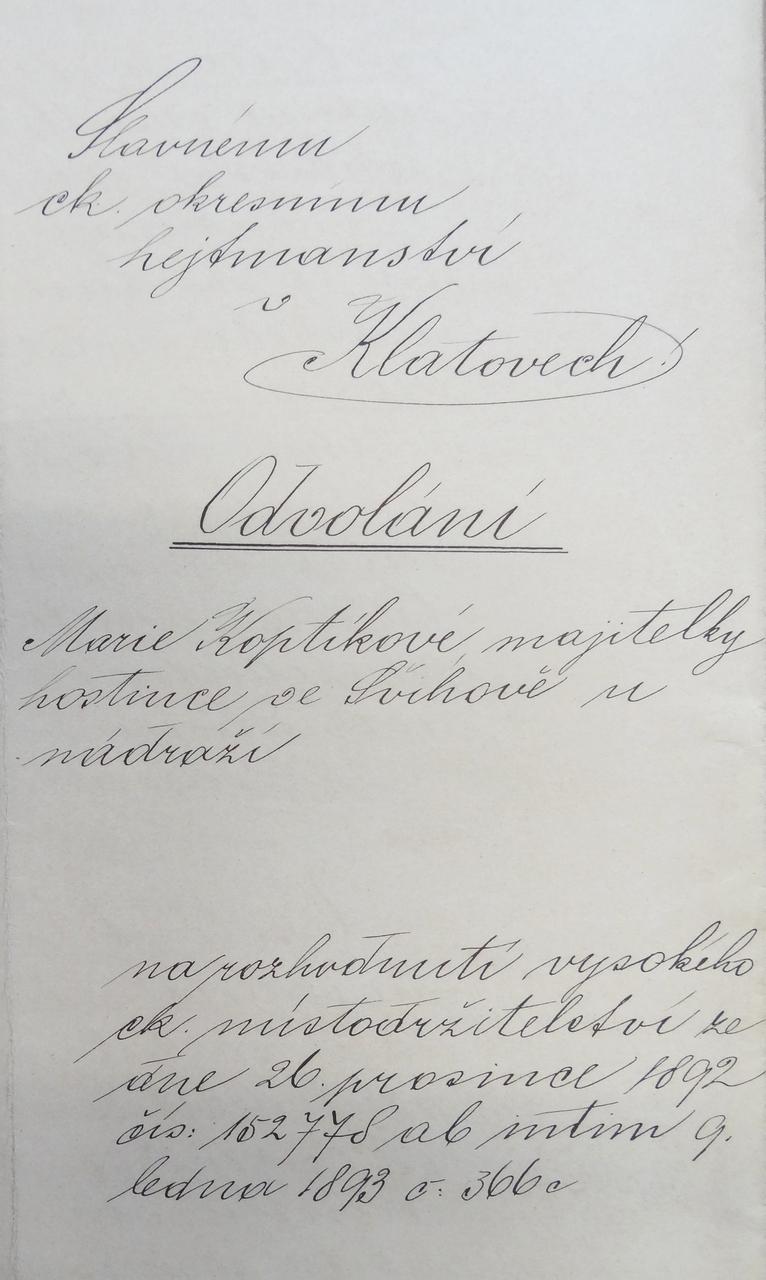 Slavnému
ck. okresnímu
hejtmanství
v
Klatovech!
Odvolání
Marie Koptíkové, majitelky
hostince ve Švihově u
nádraží
na rozhodnutí vysokého
ck. místodržitelství ze
dne 26. prosince 1892
čís: 152778 ab intim 9.
ledna 1893 č: 366